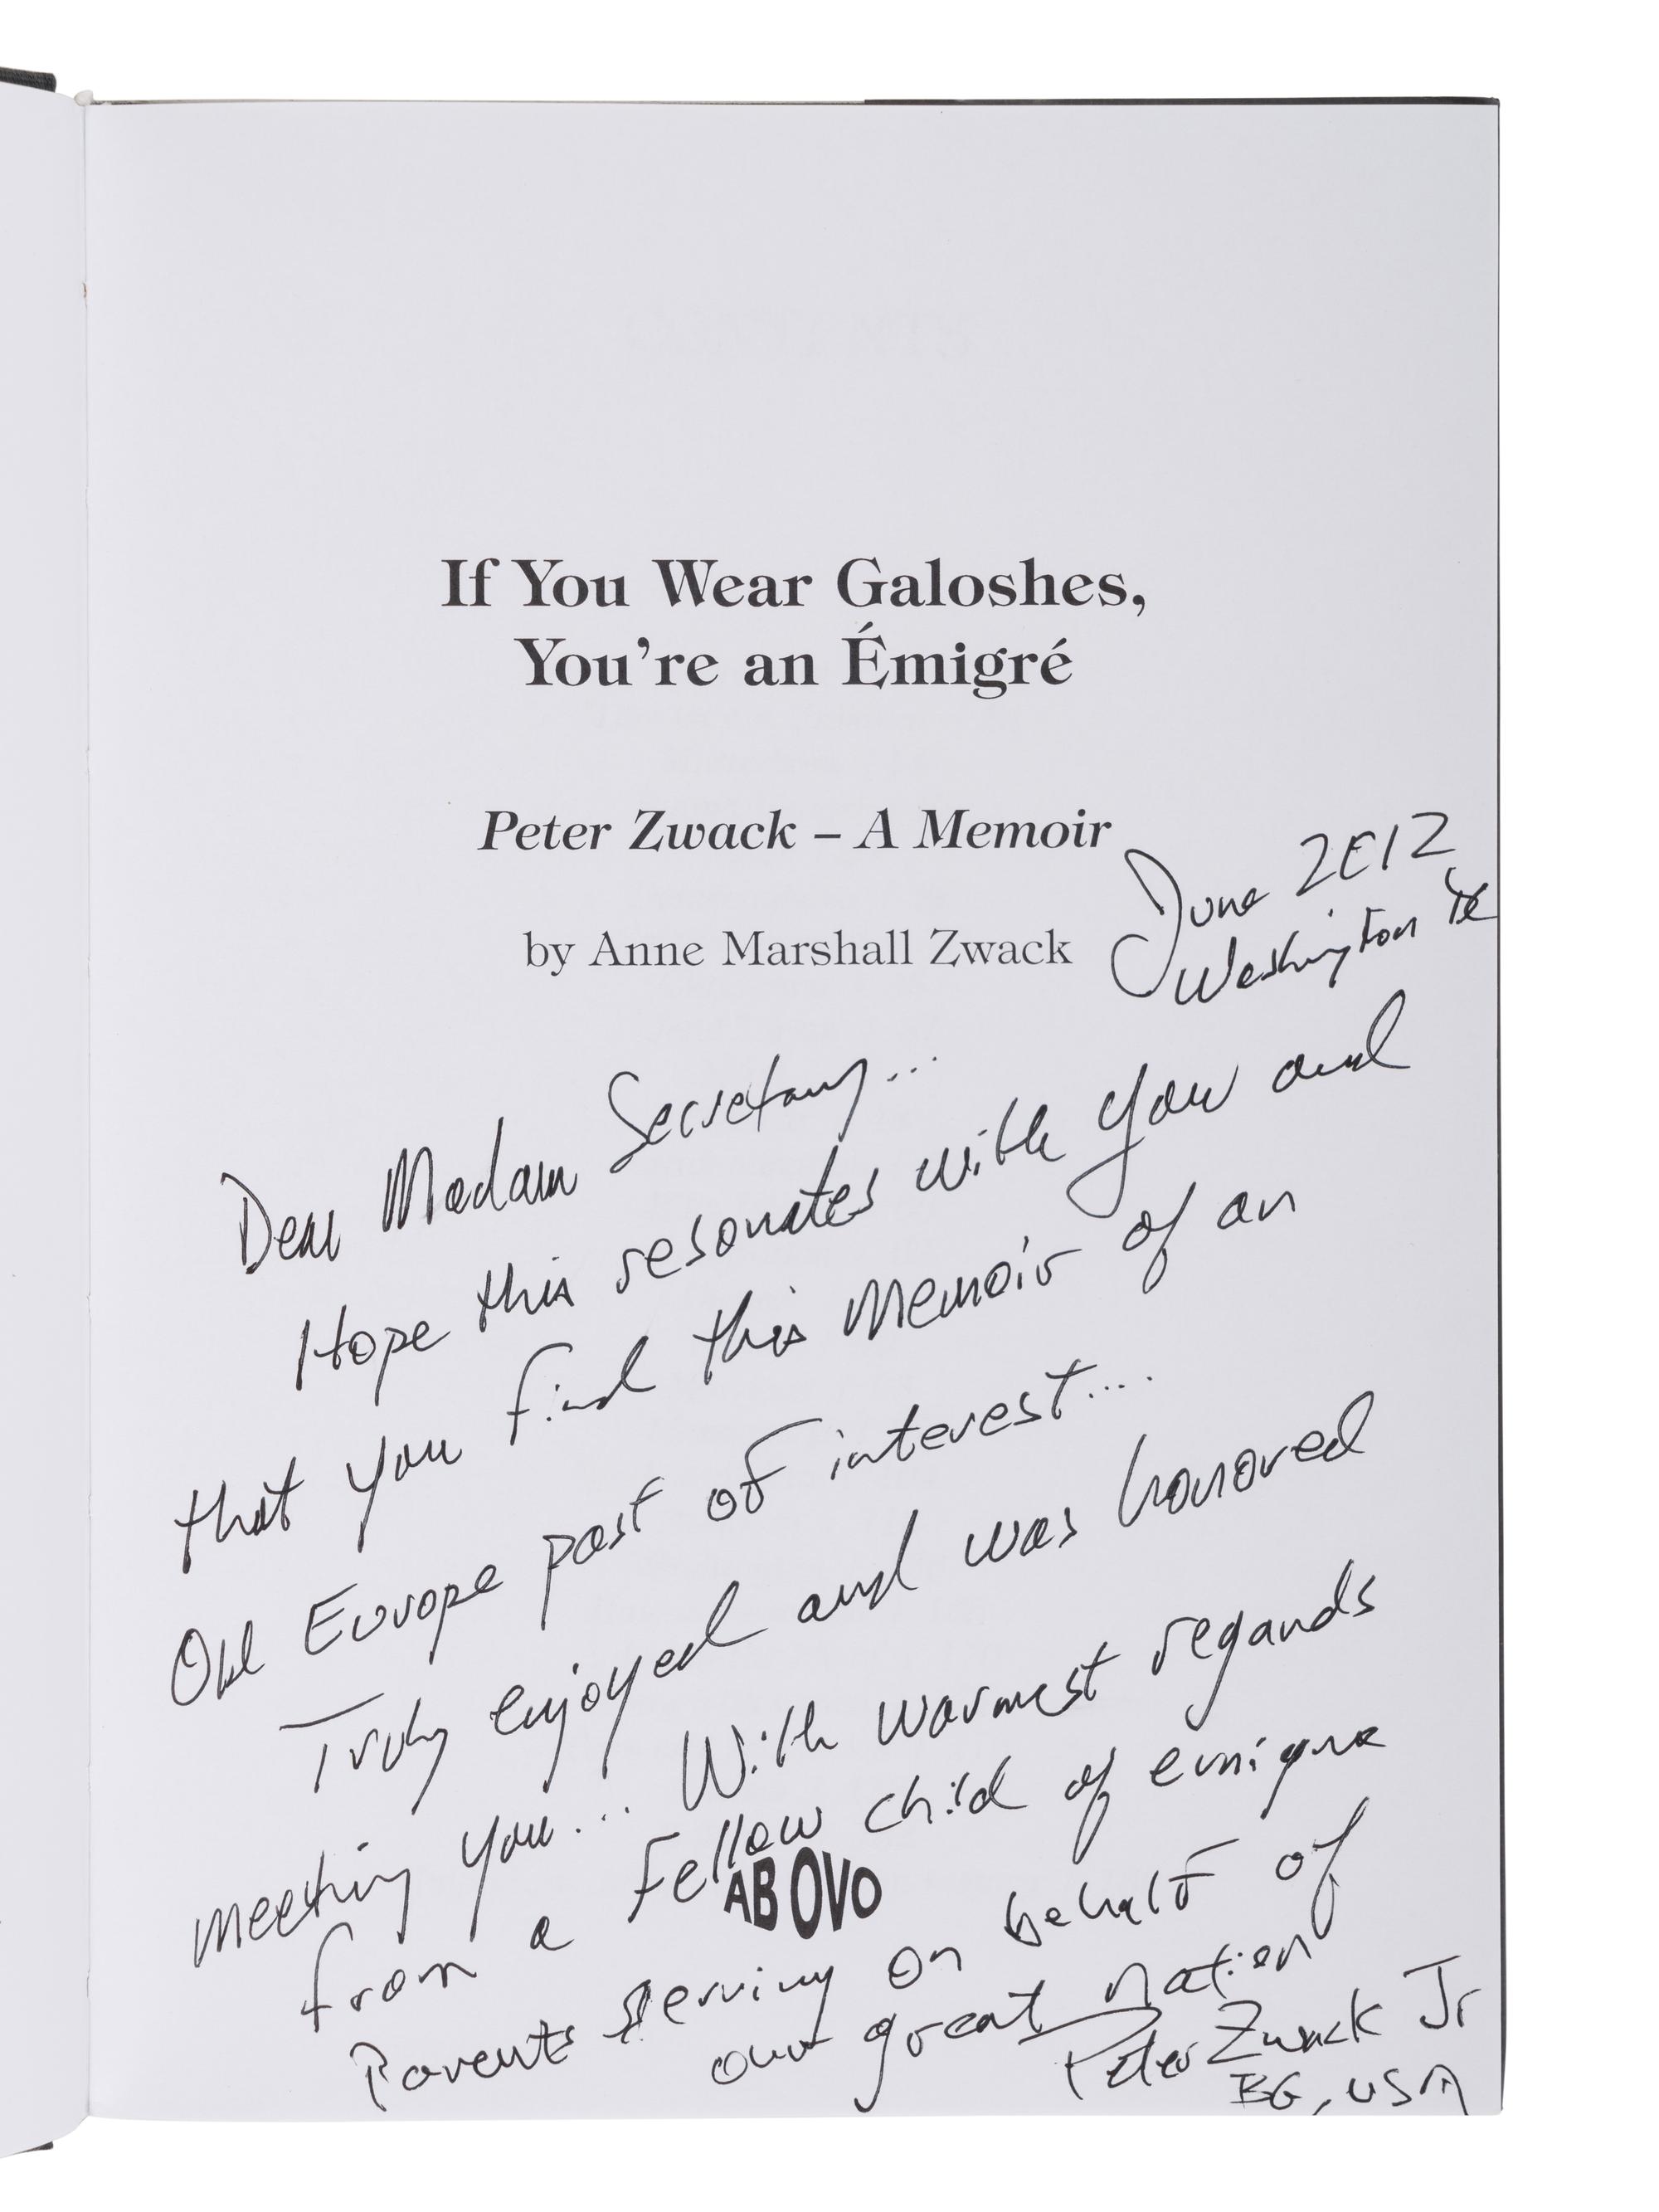 If You Wear Galoshes,
You're an Émigré
Peter Zwack – A Memoir
by Anne Marshall Zwack
June 2012
Washington DC
Dear Madam Secretary...
Hope this resonates with you and
that you find this memoir of an
Old Europe past of interest....
Truly enjoyed and was honored
meeting you... With warmest regards
from a Fellow child of emigre
AB OVO
Parents serving on behalf of
our great nation
Peter Zwack Jr
BG, USA